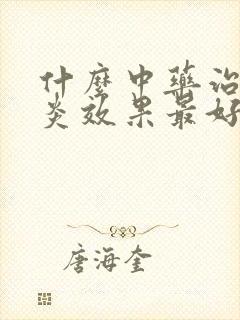 什麼中藥治
炎效果最好
唐海奎